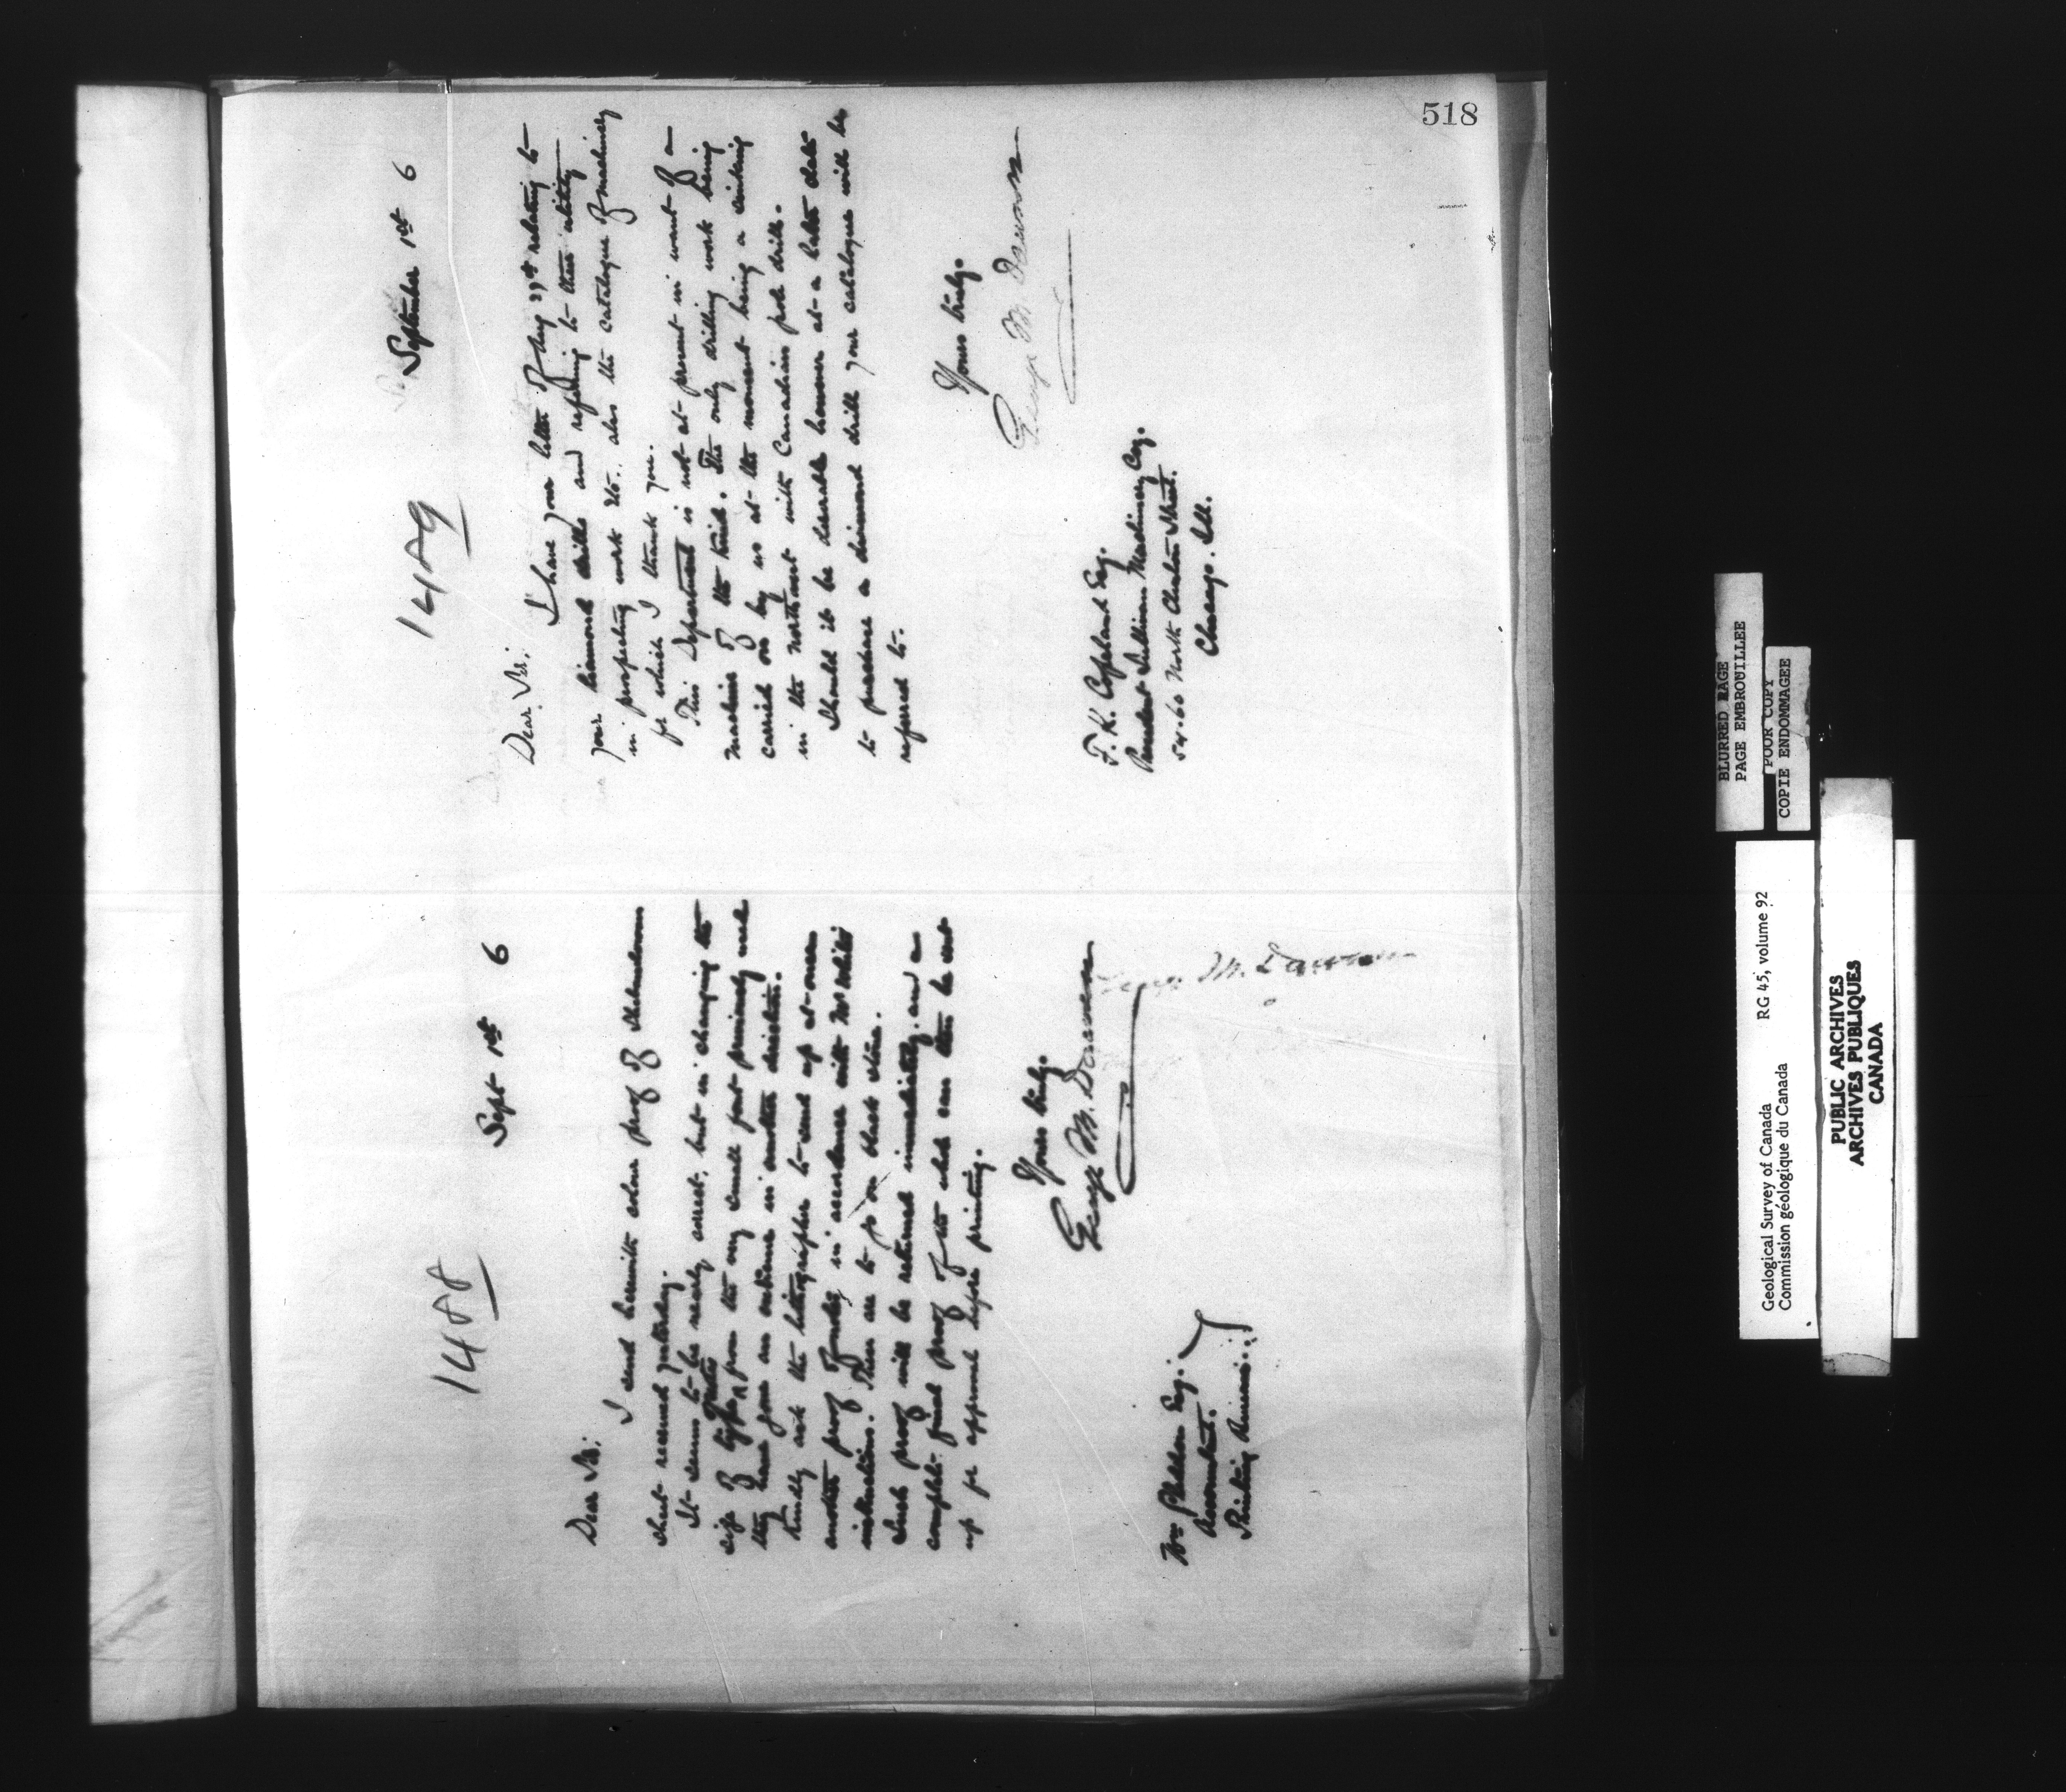 518
1488
Sept 1st 6
Dear Sir;
I send herewith colour proof of Shebandowan
sheet received yesterday.
It seems to be nearly correct, but in changing the
size of type from the very small font previously used
they have gone an extreme in another direction.
Kindly ask the lithographer to send up at once
another proof in accordance with
instructions. These are to go on black stone.
Such proof will be returned immediately, and a
complete final proof of the sheet can then be sent
up for approval before printing.
Yours truly.
George M. Dawson
George M. Dawson
Esq.
Accountant.
Printing
1489
September 1st 6
Dear Sir;
I have your letter of Aug 29th relating to
your diamond drills and referring to their utility
in prospecting work etc., also the catalogue of machinery
for which I thank you.
This Department is not at present in want of a
machine of the kind. The only drilling work being
carried on by us at the moment being a sinking
in the Northwest with Canadian pole drill.
Should it be desirable however at a later date
to procure a diamond drill your catalogue will be
referred to.
Yours truly.
George M. Dawson
F. K. Copeland Esq.
President Sullivan Machinery Coy.
54.60 North Clinton Street.
Chicago. Ill.
BLURRED PAGE
PAGE EMBROUILLEE
POOR COPY
COPIE ENDOMMAGEE
Geological Survey of Canada RG 45, volume 92
Commission géologique du Canada
PUBLIC ARCHIVES
ARCHIVES PUBLIQUES
CANADA